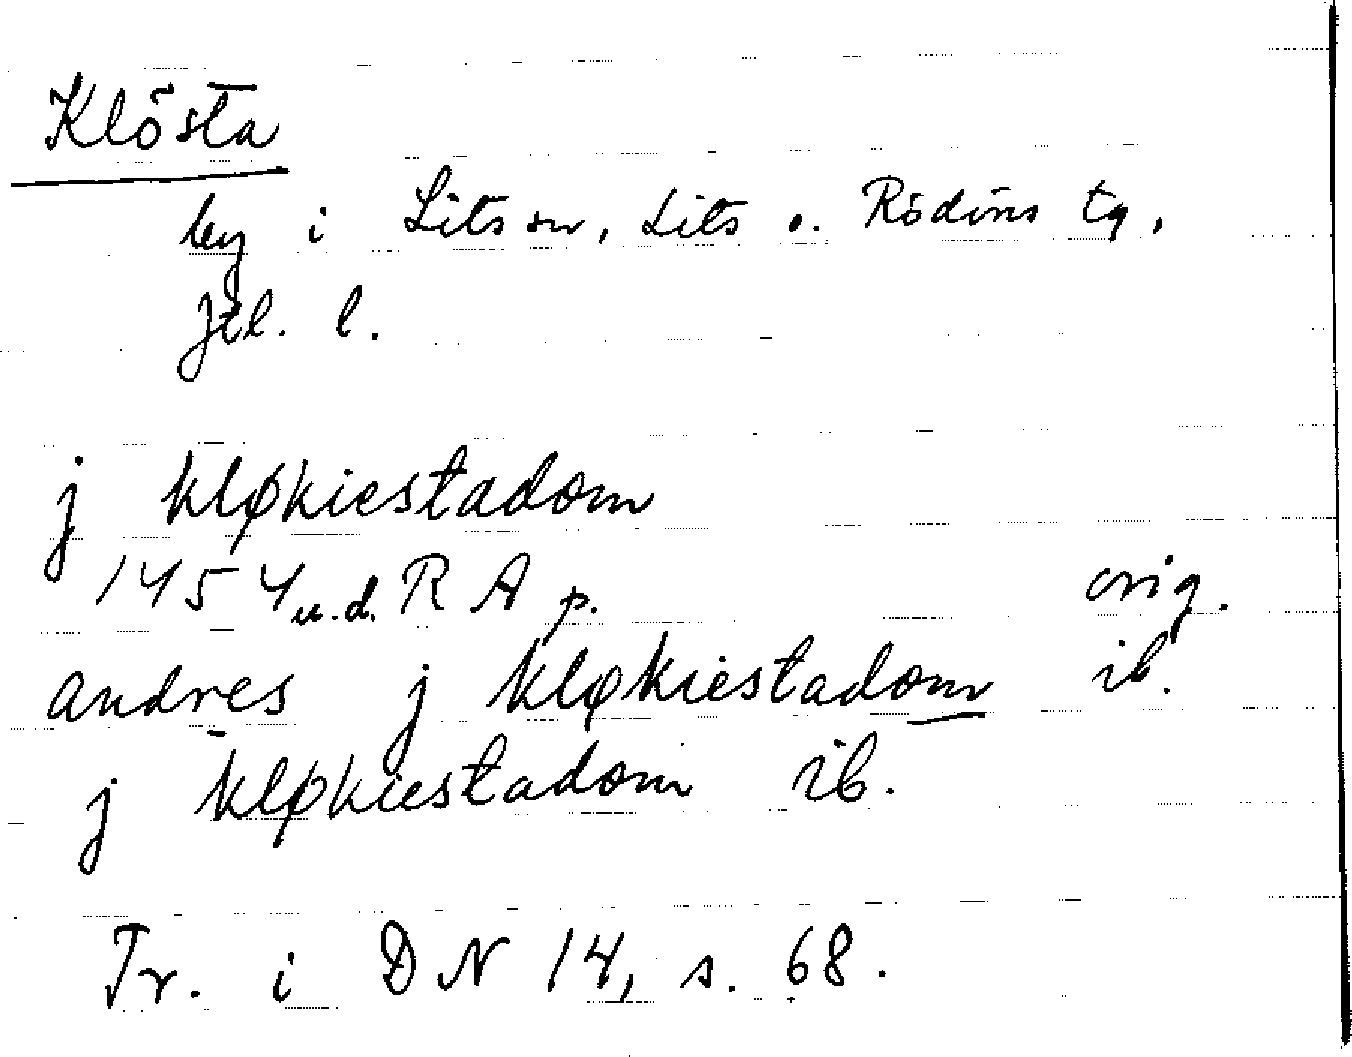 Klösta
by i Lits sn, Lits o. Rödöns tg,
Jtl. l.
j kløkiestadom
1454 u.d. RA p. orig.
andres j kløkiestadom ib.
j kløkiestadom ib.
Tr. i DN 14, s. 68.